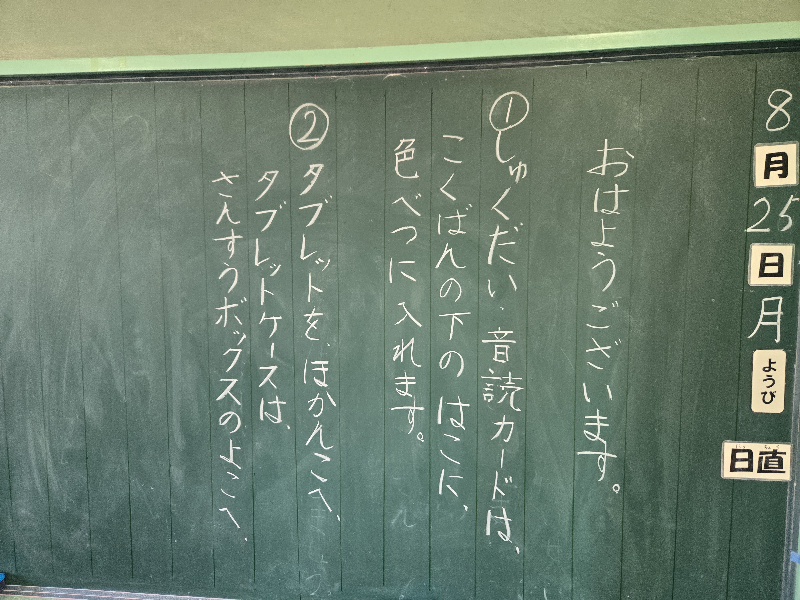 8月25日月ようび
日直
おはようございます。
①しゅくだい、音読カードは、
こくばんの下のはこに、
色べつに入れます。
②タブレットを、ほかんこへ、
タブレットケースは、
さんすうボックスのよこへ、